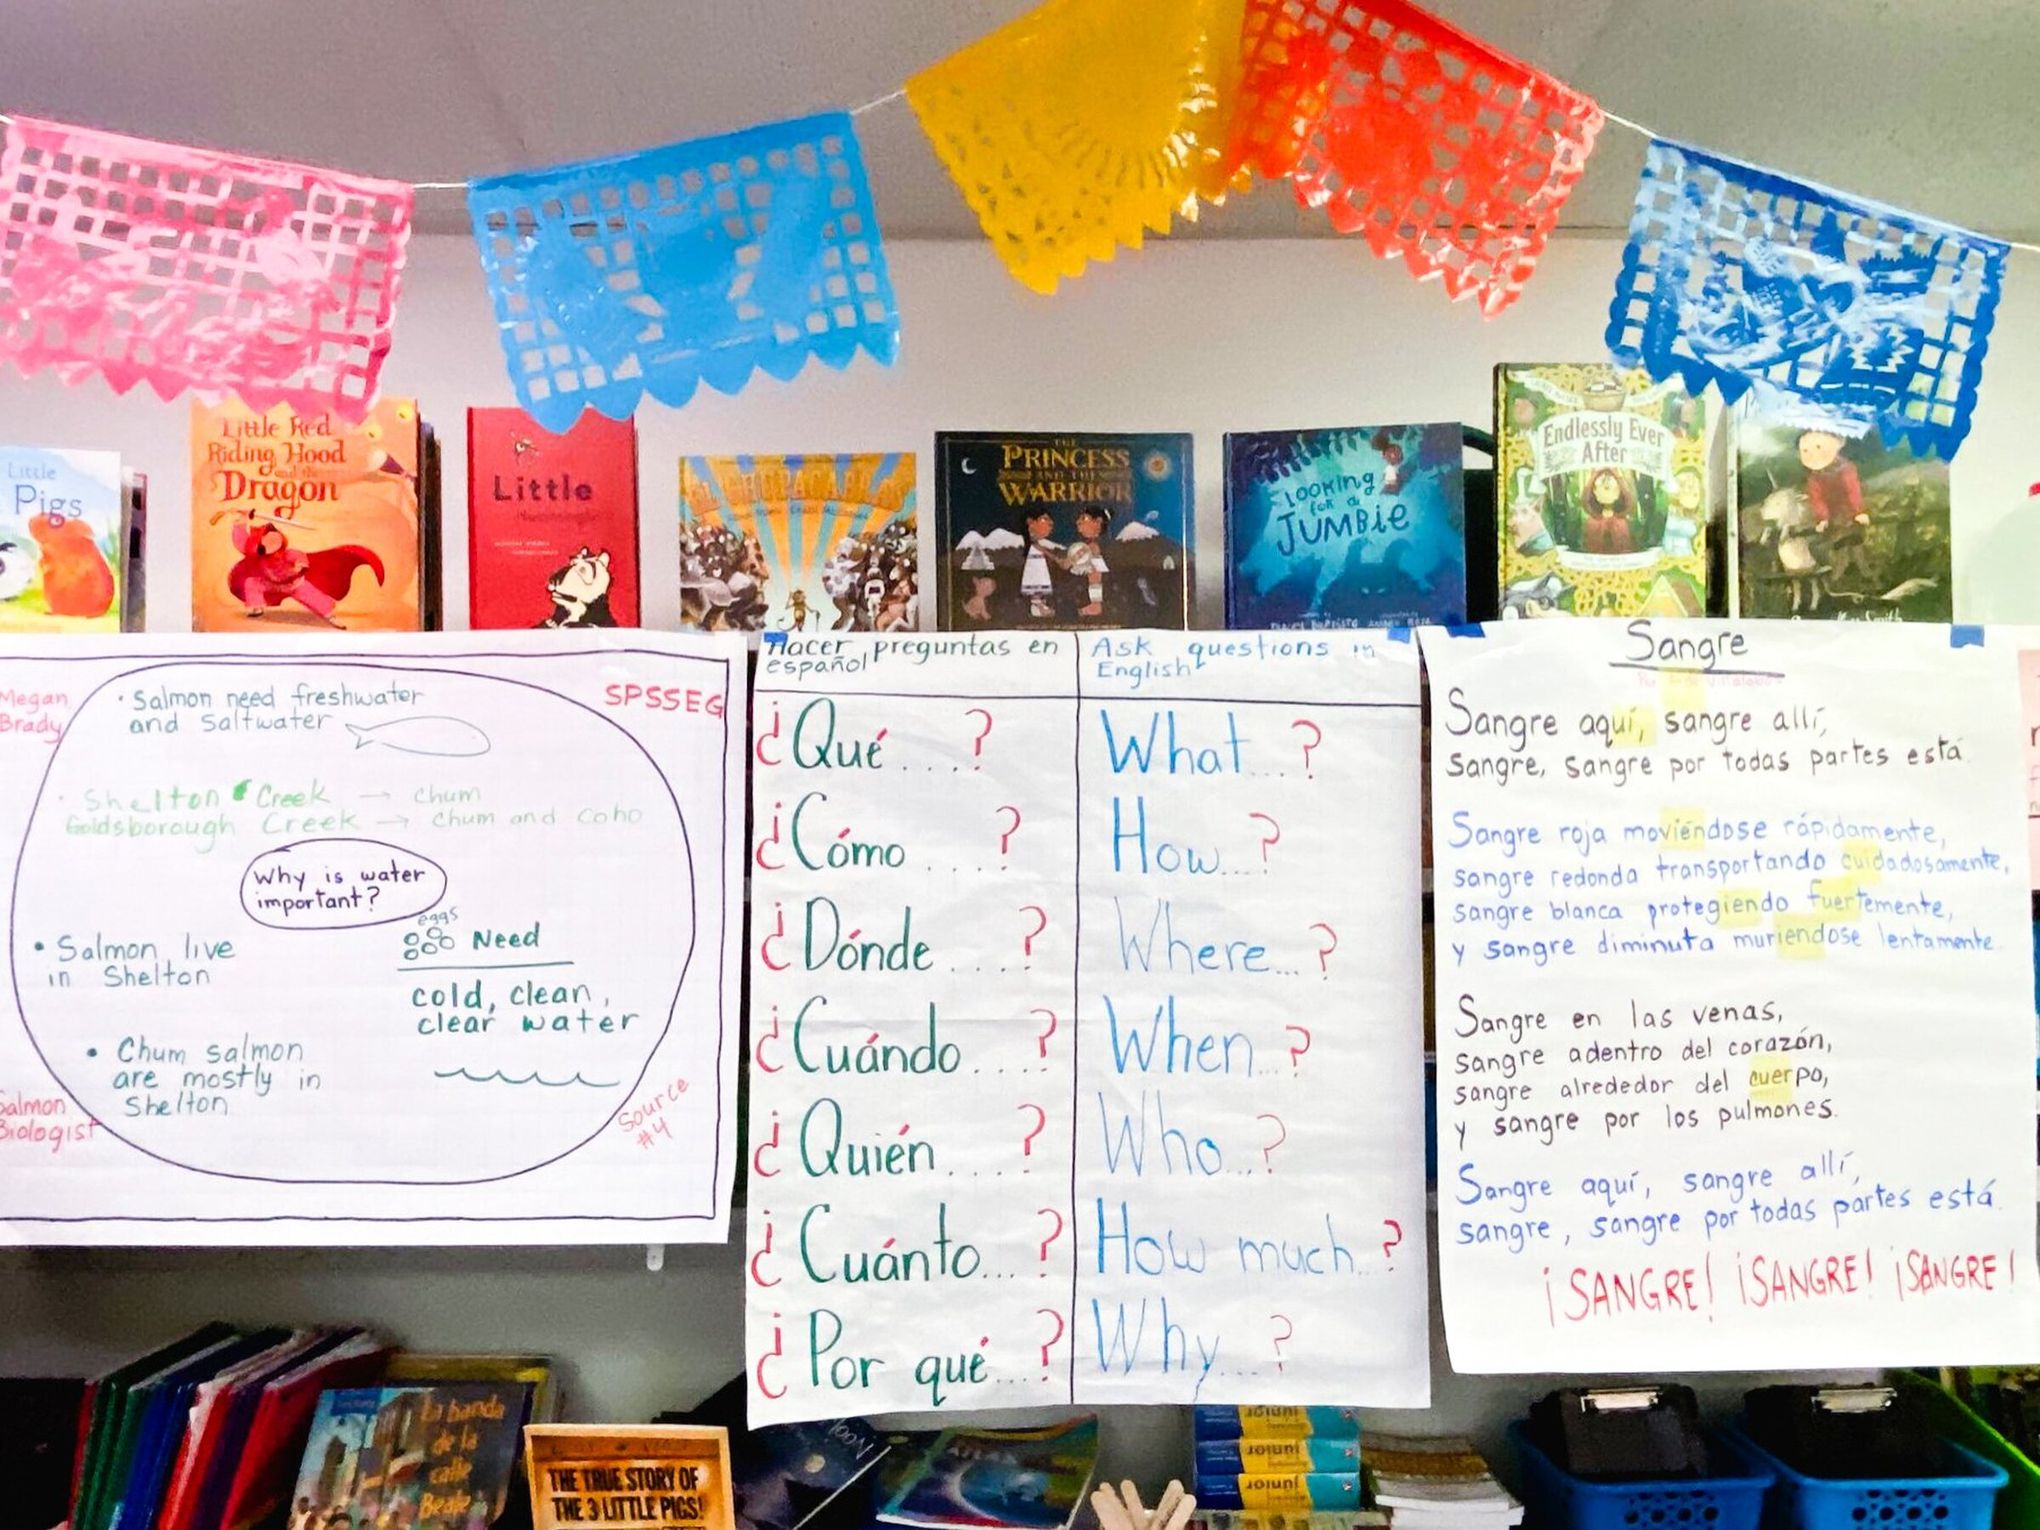 Little
Pigs
Little Red
Riding Hood
and the
Dragon
Little
THE
PRINCESS
AND THE
WARRIOR
LOOKING
for a
JUMBIE
Endlessly Ever
After
Smith
Megan
Brady
SPSSEG
• Salmon need freshwater
and saltwater
• Shelton Creek → chum
Goldsborough Creek → chum and coho
Why is water
important?
• Salmon live
in Shelton
eggs
Need
cold, clean,
clear water
• Chum salmon
are mostly in
Shelton
Salmon
Biologist
Source
#4
Hacer preguntas en
español
¿Qué....?
¿Cómo....?
¿Dónde....?
¿Cuándo....?
¿Quién....?
¿Cuánto...?
¿Por qué...?
Ask questions in
English
What...?
How...?
Where...?
When...?
Who...?
How much...?
Why...?
Sangre
Sangre aquí, sangre allí,
sangre, sangre por todas partes está.
Sangre roja moviéndose rápidamente,
sangre redonda transportando cuidadosamente,
sangre blanca protegiendo fuertemente,
y sangre diminuta muriendose lentamente.
Sangre en las venas,
sangre adentro del corazón,
sangre alrededor del cuerpo,
y sangre por los pulmones.
Sangre aquí, sangre allí,
sangre, sangre por todas partes está.
¡SANGRE! ¡SANGRE! ¡SANGRE!
La banda
de la
calle
Beale
THE TRUE STORY OF
THE 3 LITTLE PIGS!
junior
junior
junior